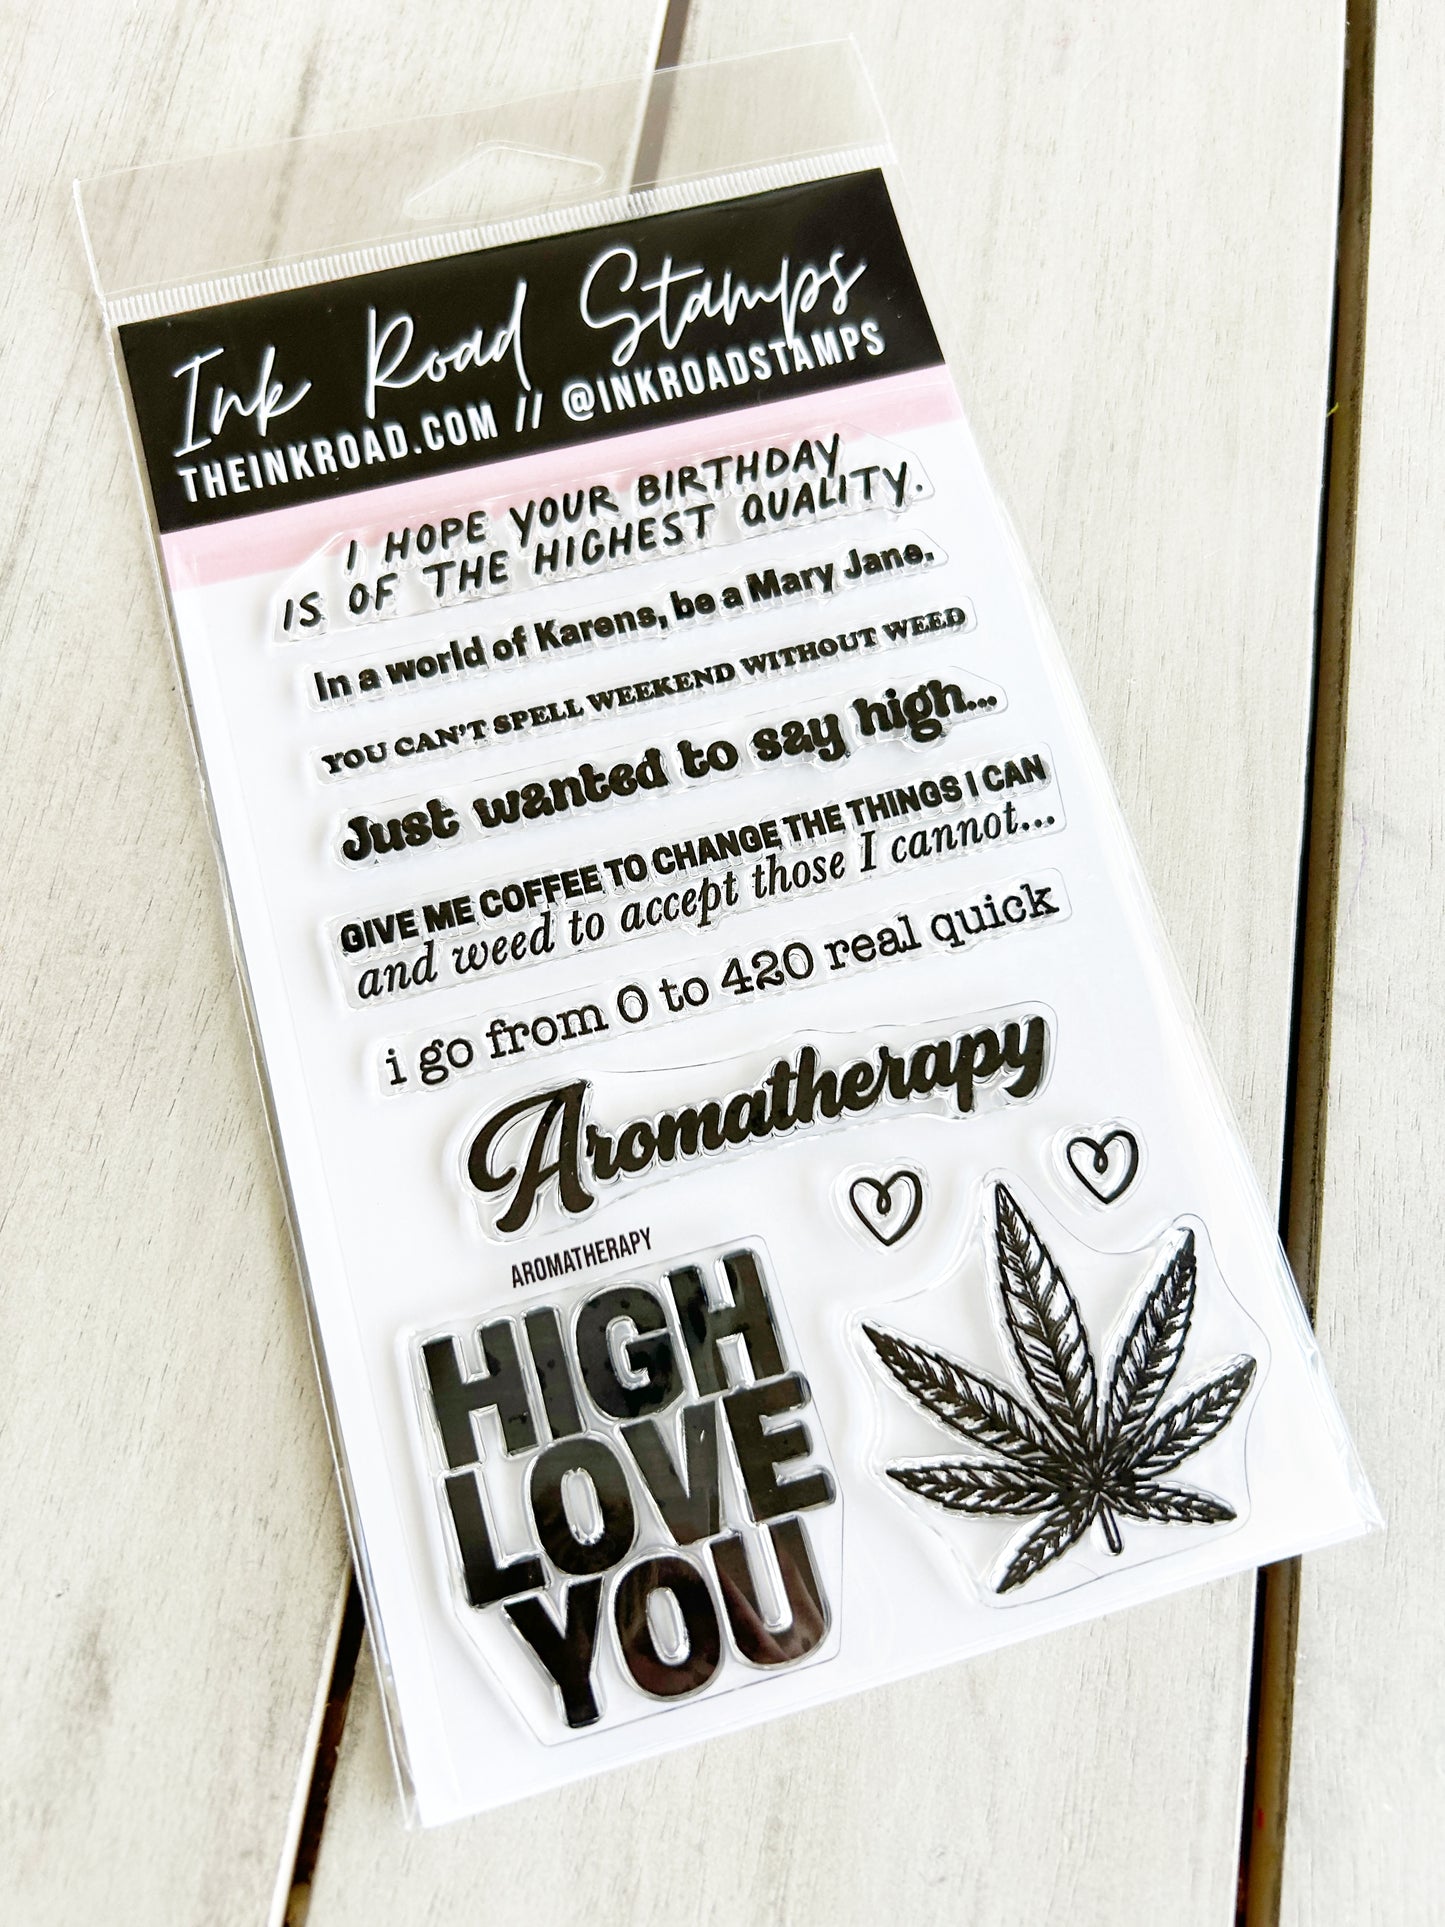 Ink Road Stamps
THEINKROAD.COM // @INKROADSTAMPS
I HOPE YOUR BIRTHDAY
IS OF THE HIGHEST QUALITY.
In a world of Karens, be a Mary Jane.
YOU CAN'T SPELL WEEKEND WITHOUT WEED
Just wanted to say high...
GIVE ME COFFEE TO CHANGE THE THINGS I CAN
and weed to accept those I cannot...
i go from 0 to 420 real quick
Aromatherapy
AROMATHERAPY
HIGH
LOVE
YOU